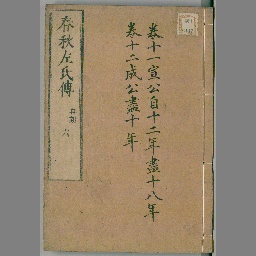 卷十一宣公自十二年盡十八年
卷十二成公盡十年
春秋左氏傳
六